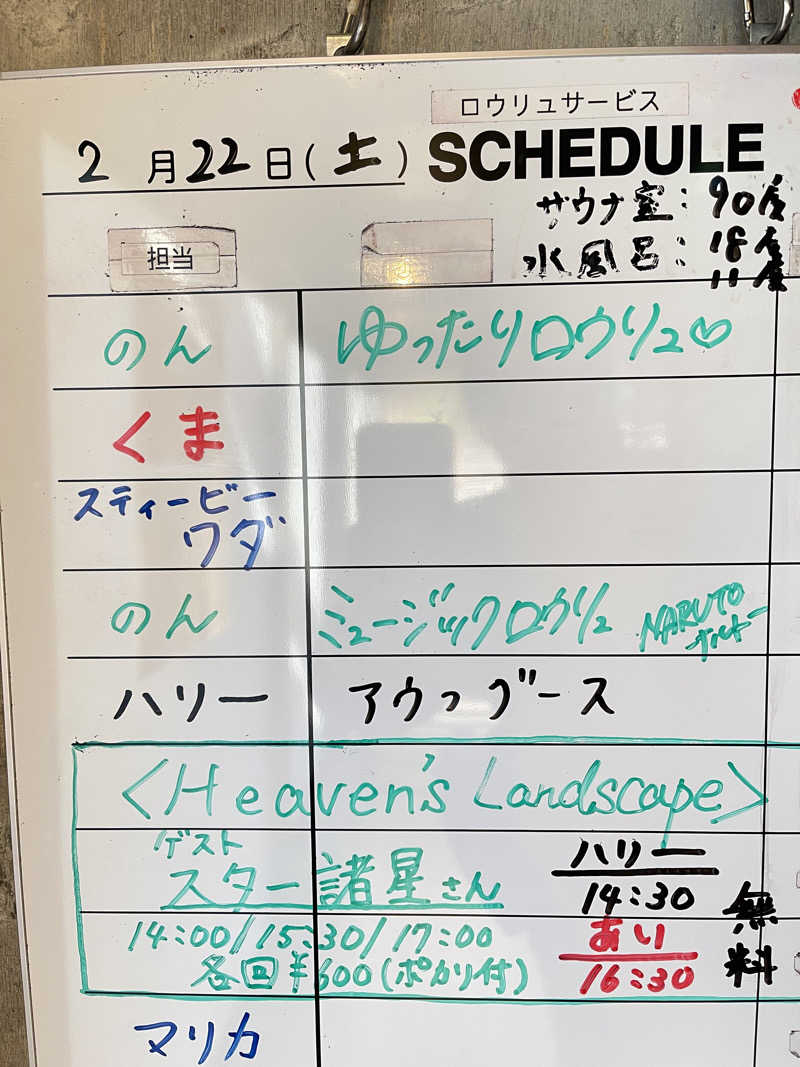 ロウリュサービス
2月22日(土) SCHEDULE
サウナ室：90度
水風呂：18度
11度
担当
のん ゆったりロウリュ♡
くま
スティービー
ワダ
のん ミュージックロウリュ NARUTO
ナルトー
ハリー アウフグース
〈Heaven's Landscape〉
ゲスト
スター諸星さん
ハリー
14:30
無料
14:00/15:30/17:00
各回¥600(ポカリ付)
あい
16:30
マリカ